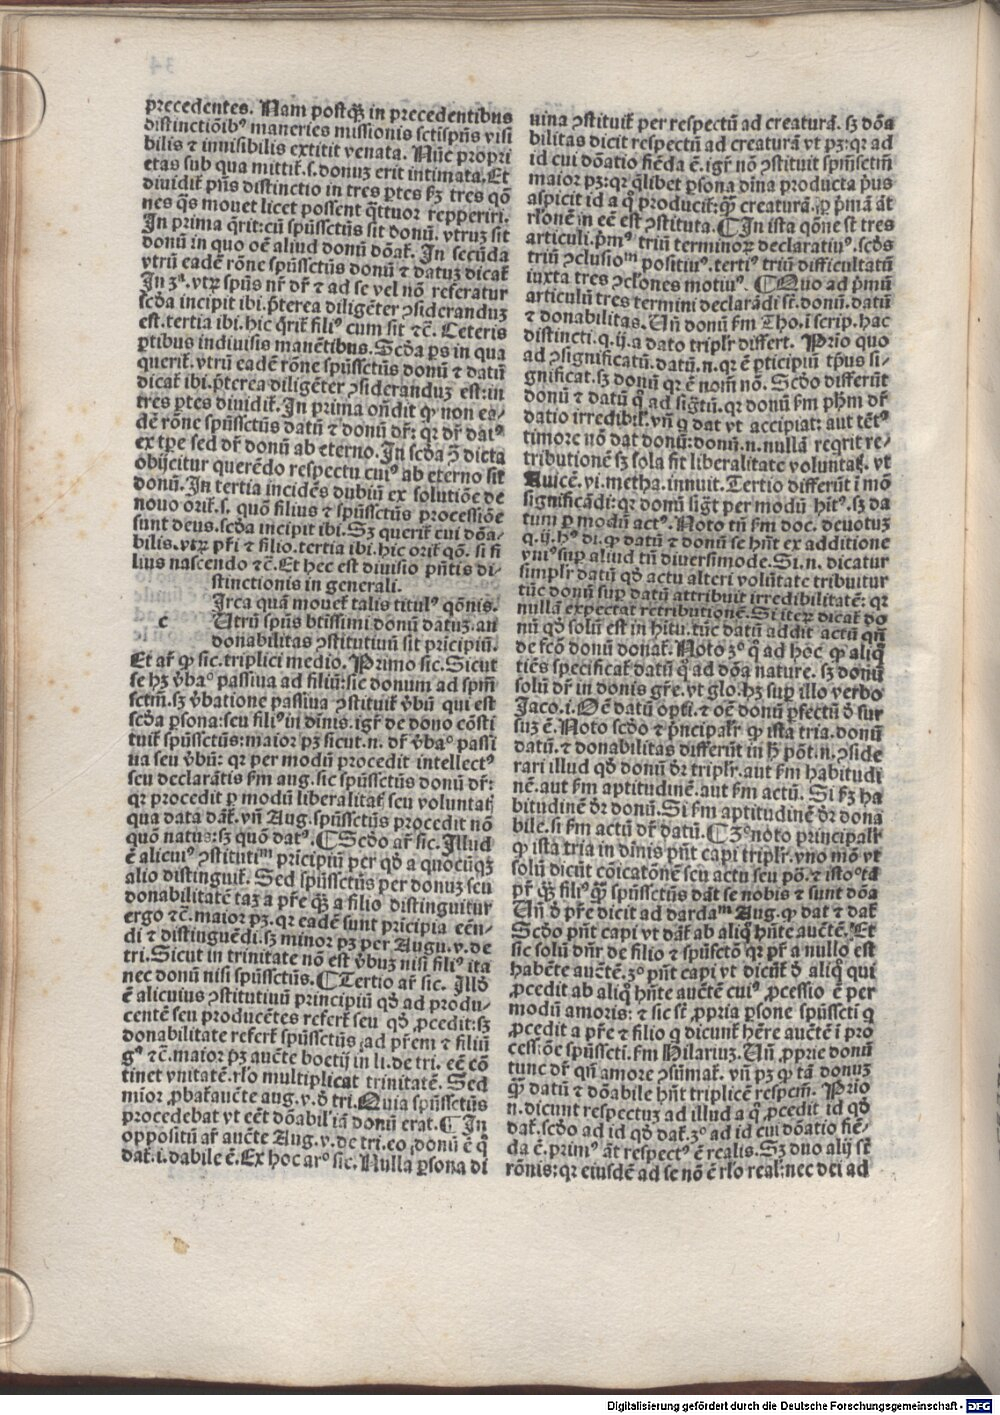 precedentes. Nam postqꝫ in precedentibus
distinctiōibꝰ maneries missionis sctispūs visi
bilis ⁊ inuisibilis extitit venata. Nūc propri
etas sub qua mittit᷑.s.donuꝫ erit intimata. Et
diuidit᷑ pn̄s distinctio in tres ꝑtes ẜꝫ tres qō
nes q̄s mouet licet possent q̄ttuor repperiri.
In prima q̄rit: cū spūssctūs sit donū. vtruꝫ sit
donū in quo oē aliud donū dōat᷑. In secūda
vtrū eadē rōne spūssctūs donū ⁊ datuꝫ dicat᷑
In 3ᵃ. vtꝝ spūs nr̄ dr̄ ⁊ ad se vel nō referatur
scd̓a incipit ibi. p̄terea diligēter ꝯsideranduꝫ
est. tertia ibi. hic q̄rit᷑ filiꝰ cum sit ⁊c̄. Ceteris
ꝑtibus indiuisis manētibus. Scd̓a ps in qua
querit᷑. vtrū eadē rōne spūssctūs donū ⁊ datū
dicat᷑ ibi. p̄terea diligēter ꝯsideranduꝫ est: in
tres ꝑtes diuidit᷑. In prima on̄dit ꝙ non ea-
dē rōne spūssctūs datū ⁊ donū dr̄: qꝛ dr̄ datꝰ
ex tpe sed dr̄ donū ab eterno. In scd̓a ꝯ̄ dicta
obijcitur querēdo respectu cuiꝰ ab eterno sit
donū. In tertia incidēs dubiū ex solutiōe de
nouo orit᷑.s. quō filius ⁊ spūssctūs processiōe
sunt deus. scd̓a incipit ibi. Sꝫ querit᷑ cui dōa-
bilis. vtꝝ pr̄i ⁊ filio. tertia ibi. hic orit᷑ qō. si fi
lius nascendo ⁊c̄. Et hec est diuisio pn̄tis di-
stinctionis in generali.
Irca quā mouet᷑ talis titulꝰ qōnis.
c Utrū spūs btissimi donū datuꝫ. an
donabilitas ꝯstitutiuū sit pricipiū.
Et ar̄ ꝙ sic. triplici medio. Primo sic. Sicut
se hꝫ v̓baº passiua ad filiū: sic donum ad spm̄
sctm̄. sꝫ v̓batione passiua ꝯstituit᷑ v̓bū qui est
scd̓a ꝑsona: seu filiꝰ in diuis. igr̄ de dono cōsti
tuit᷑ spūssctūs: maior pꝫ sicut. n. dr̄ v̓baº passi
ua seu v̓bū: qꝛ per modū procedit intellectꝰ
seu declarātis ẜm aug. sic spūssctūs donū dr̄:
qꝛ procedit ꝑ modū liberalitat᷑ seu voluntatꝭ
qua data dāt᷑. vn̄ Aug. spūssctūs procedit nō
quō natus: sꝫ quō datꝰ. ¶ Scd̓o ar̄ sic. Illud
ē alicuiꝰ ꝯstitutiᵐ pricipiū per qd̓ a quocūqꝫ
alio distinguit᷑. Sed spūssctūs per donuꝫ seu
donabilitatē taꝫ a pr̄e qꝫ a filio distinguitur
ergo ⁊c̄. maior pꝫ. qꝛ eadē sunt pricipia eēn-
di ⁊ distinguēdi. sꝫ minor pꝫ per Augu. v. de
tri. Sicut in trinitate nō est v̓buꝫ nisi filiꝰ ita
nec donū nisi spūssctūs. ¶ Tertio ar̄ sic. Illd̓
ē alicuius ꝯstitutiuū principiū qd̓ ad produ-
centē seu producētes refert᷑ seu qd̓ ꝓcedit: sꝫ
donabilitate refert᷑ spūssctūs ad pr̄em ⁊ filiū
gº ⁊c̄. maior pꝫ aucte boetij in li. de tri. eē cō
tinet vnitatē. rlo̓ multiplicat trinitatē. Sed
mior ꝓbat᷑ aucte aug. v. d̓ tri. Quia spūssctūs
procedebat vt eēt dōabilꝭ iā donū erat. ¶ In
oppositū ar̄ aucte Aug. v. de tri. eo donū ē q̓
dat᷑.i. dabile ē. Ex hoc arº sic. Nulla ꝑsona di
uina ꝯstituit᷑ per respectū ad creaturā. sꝫ dōa
bilitas dicit respectū ad creaturā vt pꝫ: qꝛ ad
id cui dōatio fiēda ē. igr̄ nō ꝯstituit spm̄sctm̄
maior pꝫ: qꝛ q̄libet ꝑsona diuina producta p̓us
aspicit id a q̓ producit᷑: qꝫ creaturā. ꝑ p̓mā āt
rlo̓nē in eē est ꝯstituta. ¶ In ista qōne st̄ tres
articuli. p̓mꝰ triū terminoꝝ declaratiuꝰ. scd̓s
triū ꝯclusioᵐ positiuꝰ. tertiꝰ triū difficultatū
iuxta tres ꝯclōnes motiuꝰ. ¶ Quo ad p̓mū
articulū tres termini declarādi st̄. donū. datū
⁊ donabilitas. Un̄ donū ẜm Tho. i scrip. hac
distincti. q. ij. a dato triplr̄ differt. Prio quo
ad ꝯsignificatū. datū. n. qꝛ ē ꝑticipiū tp̄us si-
gnificat. sꝫ donū qꝛ ē nomē nō. Scd̓o differūt
donū ⁊ datū q̓ ad sigtū. qꝛ donū ẜm ph̄m dr̄
datio irredibil᷑. vn̄ q dat vt accipiat: aut tētꝰ
timore nō dat donū: donū. n. nullā reqrit re-
tributionē sꝫ sola fit liberalitate voluntatꝭ. vt
Auicē. vi. metha. innuit. Tertio differūt i mō
significādi: qꝛ donū sigt̄ per modū hitꝰ. sꝫ da
tum ꝑ modū actꝰ. Noto tn̄ ẜm doc. deuotuꝫ
q. ij. hꝰ di. ꝙ datū ⁊ donū se hn̄t ex additione
vniꝰ suꝑ aliud tn̄ diuersimode. Si. n. dicatur
simplr̄ datū qd̓ actu alteri volūtate tribuitur
tūc donū suꝑ datū attribuit irredibilitatē: qꝛ
nullā expectat retributionē. Si iteꝝ dicat᷑ do
nū qd̓ solū est in hitu. tūc datū addit actū qn̄
de fc̄o donū donat᷑. Noto 3º q̓ ad hoc ꝙ aliq̄
tiēs specificat᷑ datū q̓ ad dōa nature. sꝫ donū
solū dr̄ in donis gr̄e. vt glo. hꝫ suꝑ illo verbo
Jaco. i. Oē datū opti. ⁊ oē donū ꝑfectū d̓ sur
suꝫ ē. Noto scd̓o ⁊ p̓ncipalr̄ ꝙ ista tria. donū
datū. ⁊ donabilitas differūt in h̓ pōt. n. ꝯside
rari illud qd̓ donū dr̄ triplr̄. aut ẜm habitudi
nē. aut ẜm aptitudinē. aut ẜm actū. Si ẜꝫ ha
bitudinē dr̄ donū. Si ẜm aptitudinē dr̄ dona
bile. si ẜm actū dr̄ datū. ¶ 3º noto principalr̄
ꝙ ista tria in diuis pn̄t capi triplr̄. vno mō vt
solū dicūt cōicatōnē seu actu seu pō. ⁊ isto mº tā
pr̄ qꝫ filiꝰ qꝫ spūssctūs dāt se nobis ⁊ sunt dōa
Un̄ d̓ pr̄e dicit ad dardaᵐ Aug. ꝙ dat ⁊ dat᷑
Scd̓o pn̄t capi vt dāt᷑ ab aliq̓ hn̄te auctē. Et
sic solū dn̄r de filio ⁊ spūsctō qꝛ pr̄ a nullo est
habēte auctē. 3º pn̄t capi vt dicūt᷑ d̓ aliq̓ qui
ꝓcedit ab aliq̓ hn̄te auctē cuiꝰ ꝓcessio ē per
modū amoris: ⁊ sic st̄ ꝓpria ꝑsone spūsscti q
ꝓcedit a pr̄e ⁊ filio q dicunt᷑ hēre auctē i pro
cessiōe spūsscti. ẜm Hilariuꝫ. Un̄ ꝓprie donū
tunc dr̄ qn̄ amore ꝯsūmat᷑. vn̄ pꝫ ꝙ tā donuꝫ
qꝫ datū ⁊ dōabile hn̄t triplicē respcm̄. Prio
n. dicunt respectuꝫ ad illud a q̓ ꝓcedit id qd̓
dat᷑. scd̓o ad id qd̓ dat᷑. 3º ad id cui dōatio fiē-
da ē. primꝰ āt respectꝰ ē realis. Sꝫ duo alij st̄
rōnis: qꝛ eiusdē ad se nō ē rlo̓ realꝭ: nec dei ad
Digitalisierung gefördert durch die Deutsche Forschungsgemeinschaft - DFG